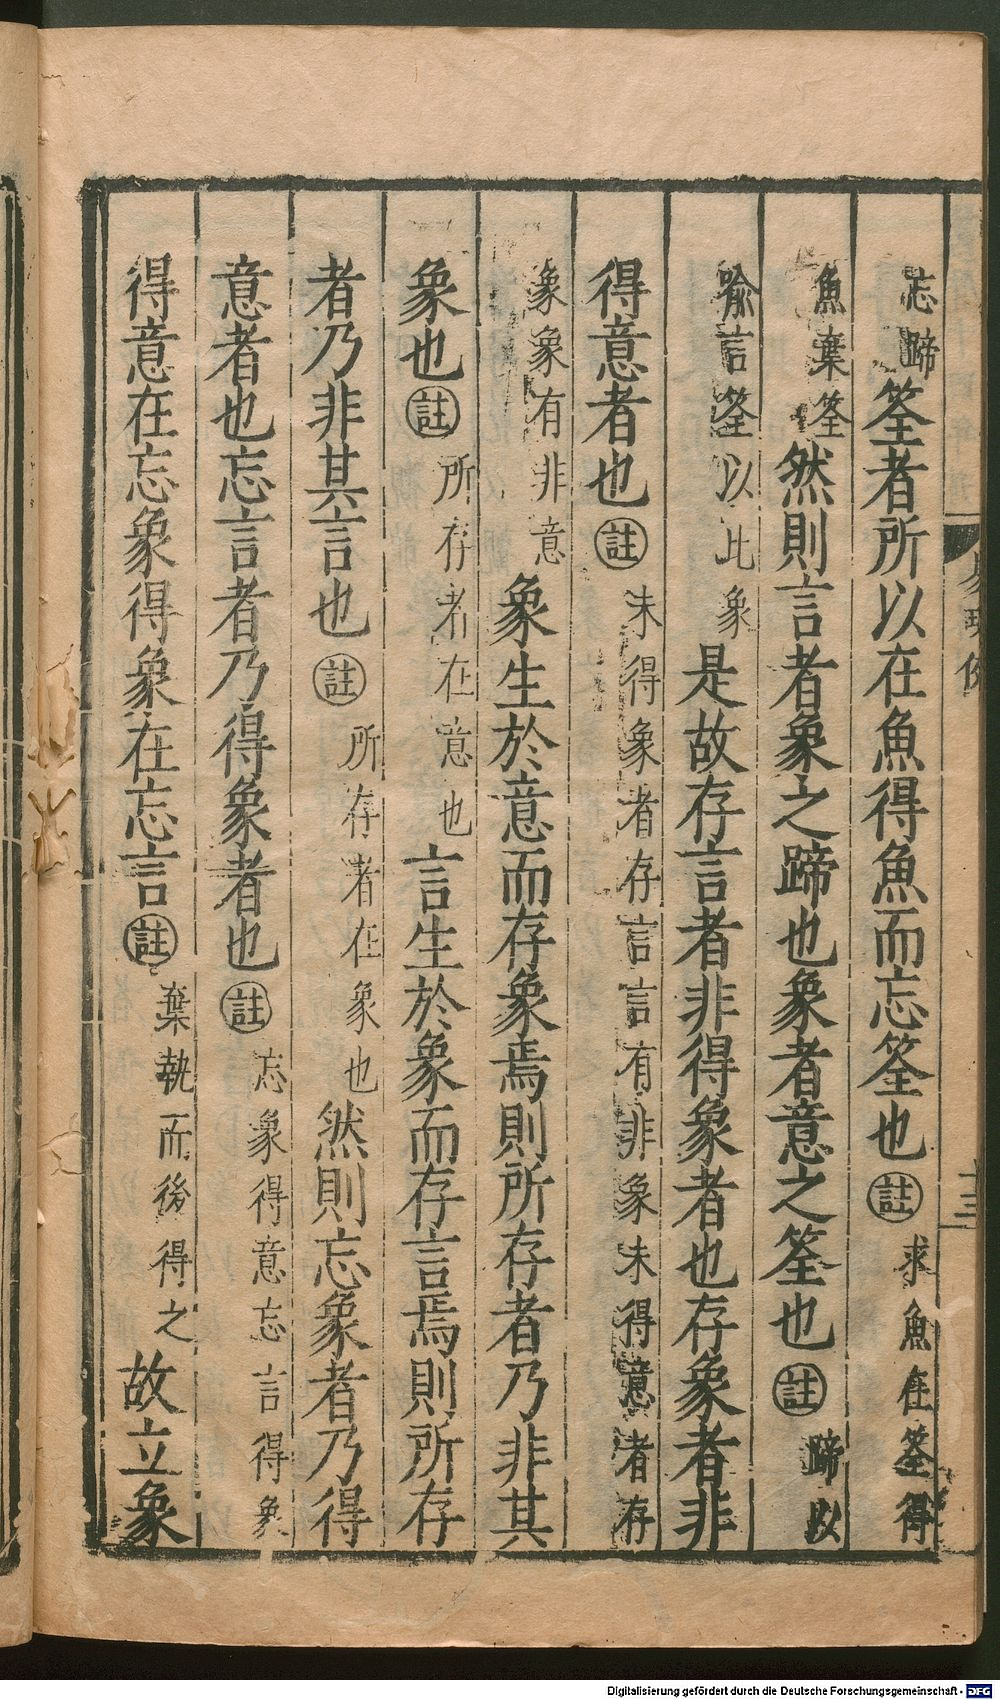 忘蹄筌者所以在魚得魚而忘筌也註求魚在筌得
魚棄筌然則言者象之蹄也象者意之筌也註蹄以
喻言筌以比象是故存言者非得象者也存象者非
得意者也註未得象者存言言有非象未得意者存
象象有非意象生於意而存象焉則所存者乃非其
象也註所存者在意也言生於象而存言焉則所存
者乃非其言也註所存者在象也然則忘象者乃得
意者也忘言者乃得象者也註忘象得意忘言得象
得意在忘象得象在忘言註棄執而後得之故立象
十三
Digitalisierung gefördert durch die Deutsche Forschungsgemeinschaft - DFG